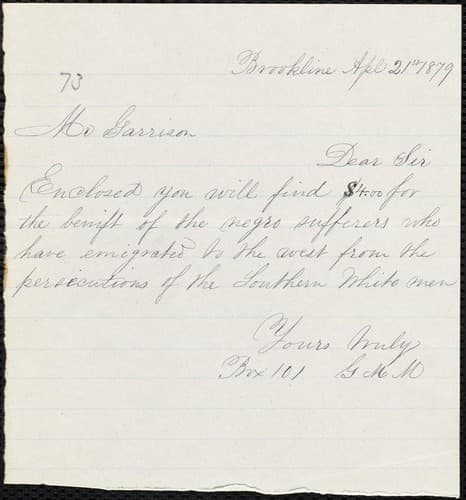 Brookline Apl 21st 1879
73
Mr Garrison
Dear Sir
Enclosed you will find $4.00 for
the benift of the negro sufferers who
have emigrated to the west from the
persecutions of the Southern White men
Yours truly
Box 101 G M M